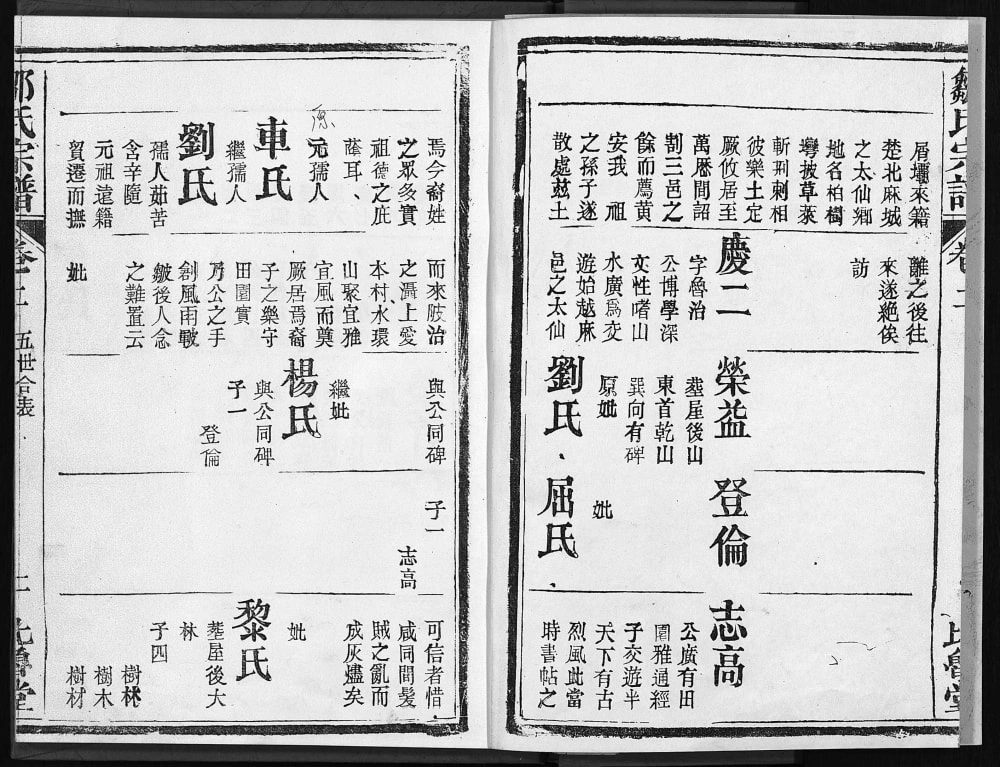 卷二
屑壩來籍
楚北麻城
之太仙鄉
地名柏樹
灣披草萊
斬荆剌相
彼樂土定
厥攸居至
萬厯間詔
割三邑之
餘而薦黄
安我 祖
之孫子遂
散處兹土
焉今裔姓
之眾多實
祖德之庇
蔭耳、
元孺人
車氏
繼孺人
劉氏
孺人茹苦
含辛隨
元祖遠籍
貿遷而撫
離之後往
來遂絶俟
訪
慶二
字魯治
公博學深
文性嗜山
水廣爲交
遊始越麻
邑之太仙
而來陂治
之灄上愛
本村水環
山聚宜雅
宜風而奠
厥居焉裔
子之樂守
田園實
乃公之手
創風雨敬
皴後人念
之難置云
妣
榮益
塟屋後山
東首乾山
巽向有碑
原妣
劉氏、
與公同碑
繼妣
楊氏
與公同碑
子一
登倫
登倫
妣
屈氏、
子一
志高
志高
公廣有田
園雅通經
子交遊半
天下有古
烈風此當
時書帖之
可信者惜
咸同間髪
賊之亂而
成灰燼矣
妣
黎氏
塟屋後大
林
子四
樹林
樹木
樹材
鄒氏宗譜
卷二
五世合表
二